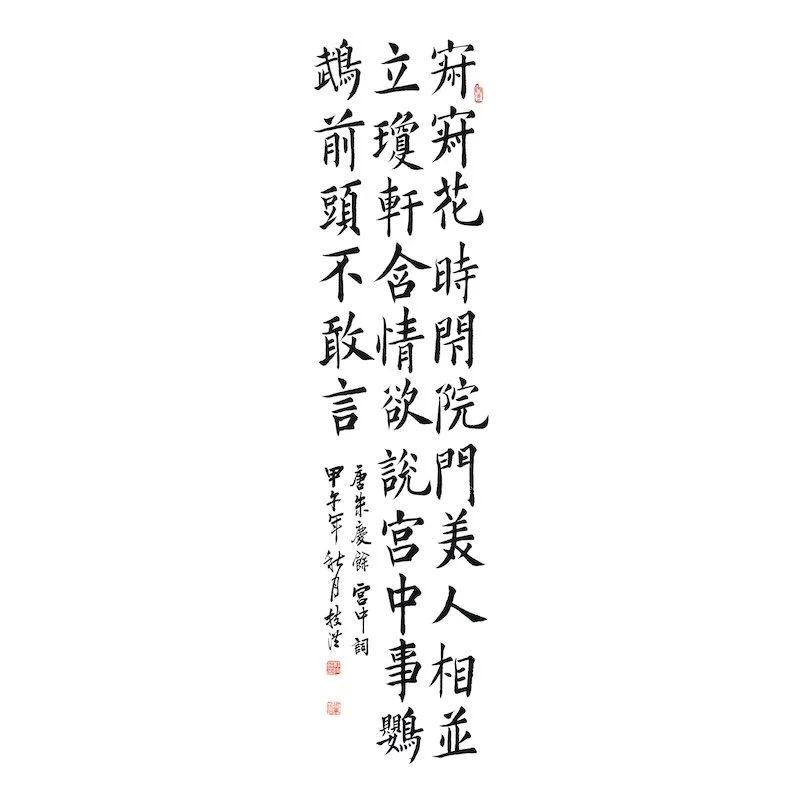 寂寂花時閇院門美人相並
立瓊軒含情欲説宫中事鸚
鵡前頭不敢言
唐朱慶餘宫中詞
甲午年秋月